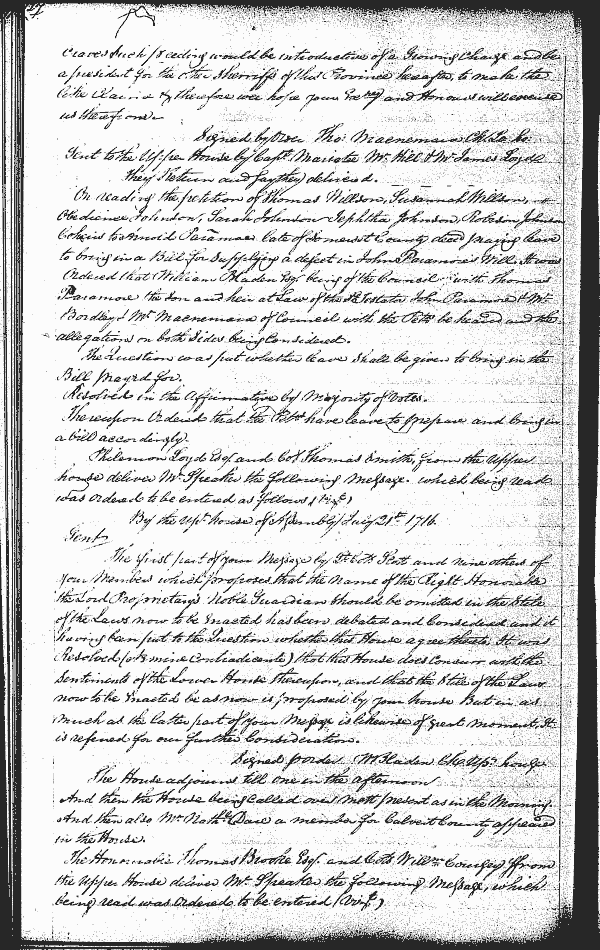 craves such p'ceeding would be introductive of a Growing Charge and be
a president for the other Sherriffs of this Province hereafter to make the
like Claime & therefore wee hope your Excy and Honours will excuse
us therefrom
Signed by Order Tho: Macnemara Cl Lo ho:
Sent to the Upper House by Capt. Mariotte Mr Hill & Mr James Loyd
they Return and say they delivered.
On reading the petition of Thomas Willson, Susannah Willson,
Obedience Johnson, Sarah Johnson Jephtha Johnson, Robeson Johnson
Coheirs to Arnold Paramore late of Somerset County decd praying leave
to bring in a Bill for Supplying a defect in John Paramore's Will. It was
Ordered that William Bladen Esqr being of the Council with Thomas
Paramore the Son and heir at Law of the Testator John Paramore & Mr
Bordley & Mr Macnemara of Council with the Petrs be heard and the
allegations on both Sides being Considered.
The Question was put whether leave shall be given to bring in the
Bill prayed for.
Resolved in the Affirmative by Majority of Votes.
Thereupon Ordered that the Petrs have leave to prepare and bring in
a bill accordingly.
Philemon Loyd Esqr and Col Thomas Smith, from the Upper
house deliver Mr Speaker the following Message. which being read
was ordered to be entered as follows (Vizt)
By the Upr house of Assembly July 21st 1716.
Gent
The first part of your Message by Lt Coll Scott and nine others of
your Members which proposes that the name of the Right Honourable
the Lord Proprietary's Noble Guardian should be omitted in the Stile
of the Laws now to be Enacted has been debated and Considered and it
having been put to the Question whether this House agree thereto. It was
Resolved (nemine Contradicente) that this House does Concur with the
Sentiments of the Lower House thereupon, and that the Stile of the Laws
now to be Enacted be as now is proposed by your house But in as
much as the latter part of your Message is likewise of great moment, It
is referred for our further Consideration.
Signed p order W Bladen Cl Upr house
The House adjourns till one in the afternoon
And then the House being Called over were present as in the Morning.
And then also Mr Nathl Dare a member for Calvert County appeared
in the House.
The Honourable Thomas Brooke Esqr and Coll Willm Coursey from
the Upper House deliver Mr Speaker the following Message, which
being read was Ordered to be entered (Vizt)